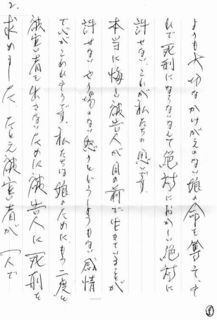 よりも大切なかけがえのない娘の命を奪って、そ
れで死刑にならないなんて絶対におかしい、絶対に
許せない。これが私たちの思いです。
本当に悔しい。被告人が目の前で生きていることが
許せない。やり場のない怒りというしようもない感情
でいっぱいです。私たちは娘のために、もう二度と
被害者を出さないために被告人に死刑を
求めました。たとえ被害者が一人で
2.